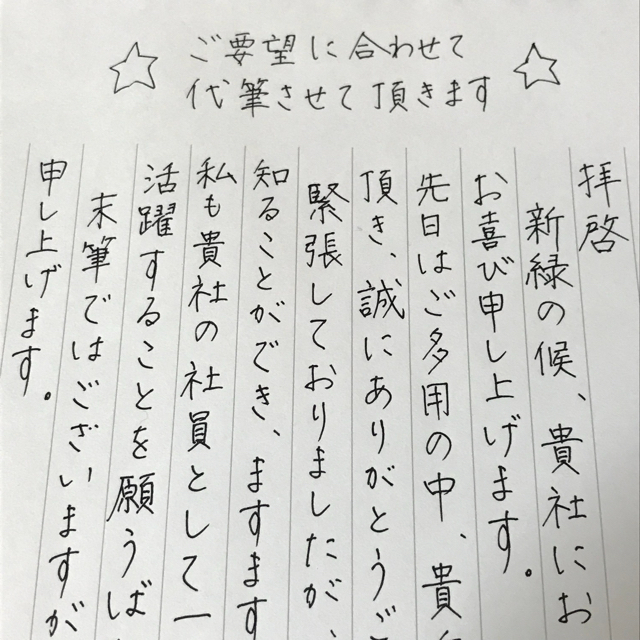 ご要望に合わせて
代筆させて頂きます
拝啓
新緑の候、貴社にお
お喜び申し上げます。
先日はご多用の中、貴
頂き、誠にありがとうご
緊張しておりましたが、
知ることができ、ますます
私も貴社の社員として一
活躍することを願うば
末筆ではございますが
申し上げます。